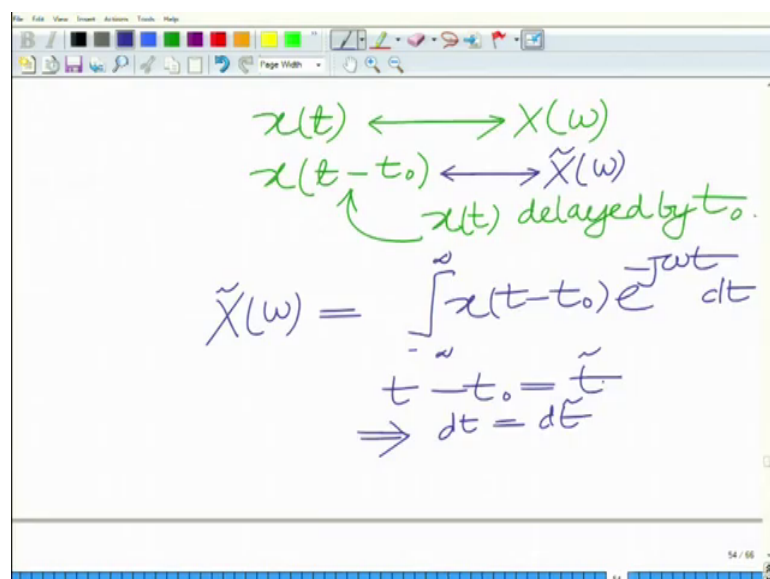 File Edit View Insert Actions Tools Help
B I
Page Width
x(t) ⟷ X(ω)
x(t − t₀) ⟷ X̃(ω)
x(t) delayed by t₀.
X̃(ω) = ∫_{-∞}^{∞} x(t−t₀) e^{−jωt} dt
t − t₀ = t̃
⇒ dt = dt̃
54 / 66
54